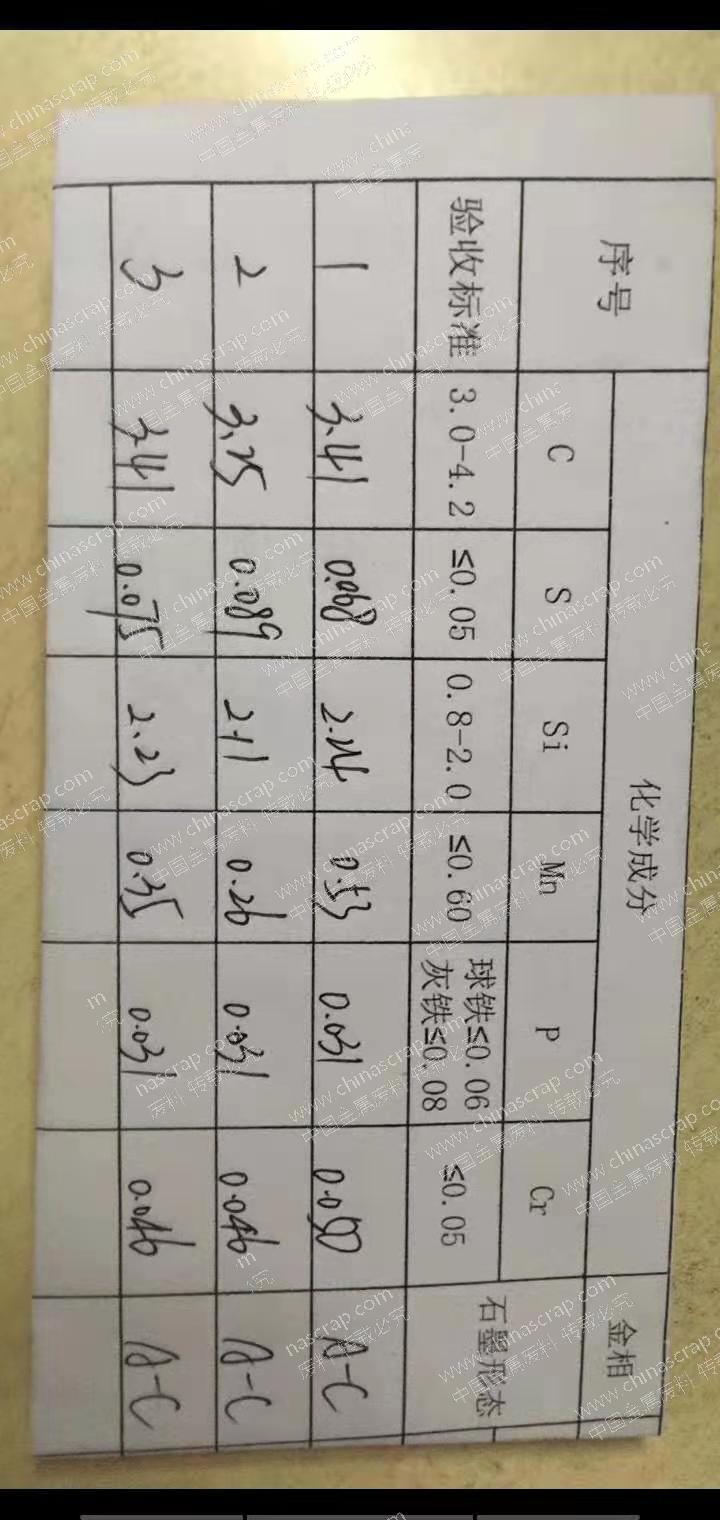 序号 化学成分 金相
C S Si Mn P Cr 石墨形态
验收标准 3.0-4.2 ≤0.05 0.8-2.0 ≤0.60 球铁≤0.06 ≤0.05
灰铁≤0.08
1 3.41 0.068 2.24 0.53 0.031 0.050 A-C
2 3.25 0.089 2.11 0.26 0.031 0.046 A-C
3 3.41 0.075 2.23 0.35 0.031 0.046 A-C
www.chinascrap.com
中国金属废料 转载必究